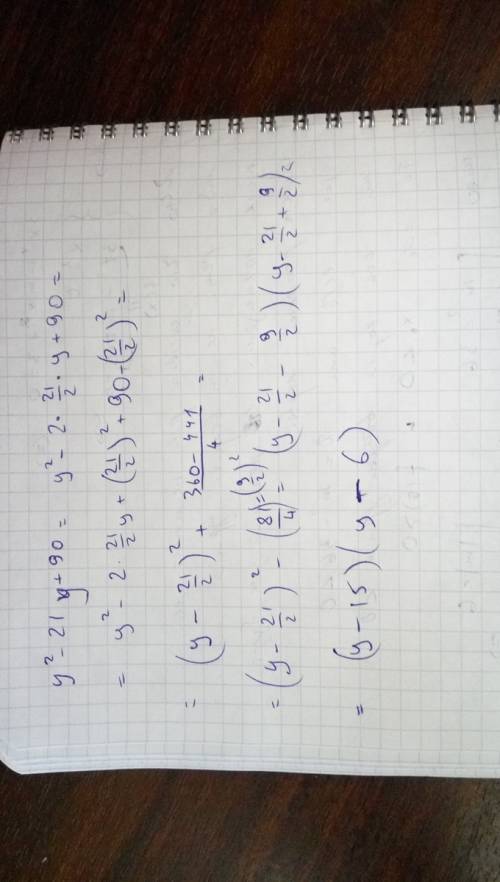 y² - 21y + 90 = y² - 2 · 21/2 · y + 90 =
= y² - 2 · 21/2 y + (21/2)² + 90 - (21/2)² =
= (y - 21/2)² + 360 - 441/4 =
= (y - 21/2)² - (81/4) = (9/2)² = (y - 21/2 - 9/2)(y - 21/2 + 9/2) =
= (y - 15)(y - 6)